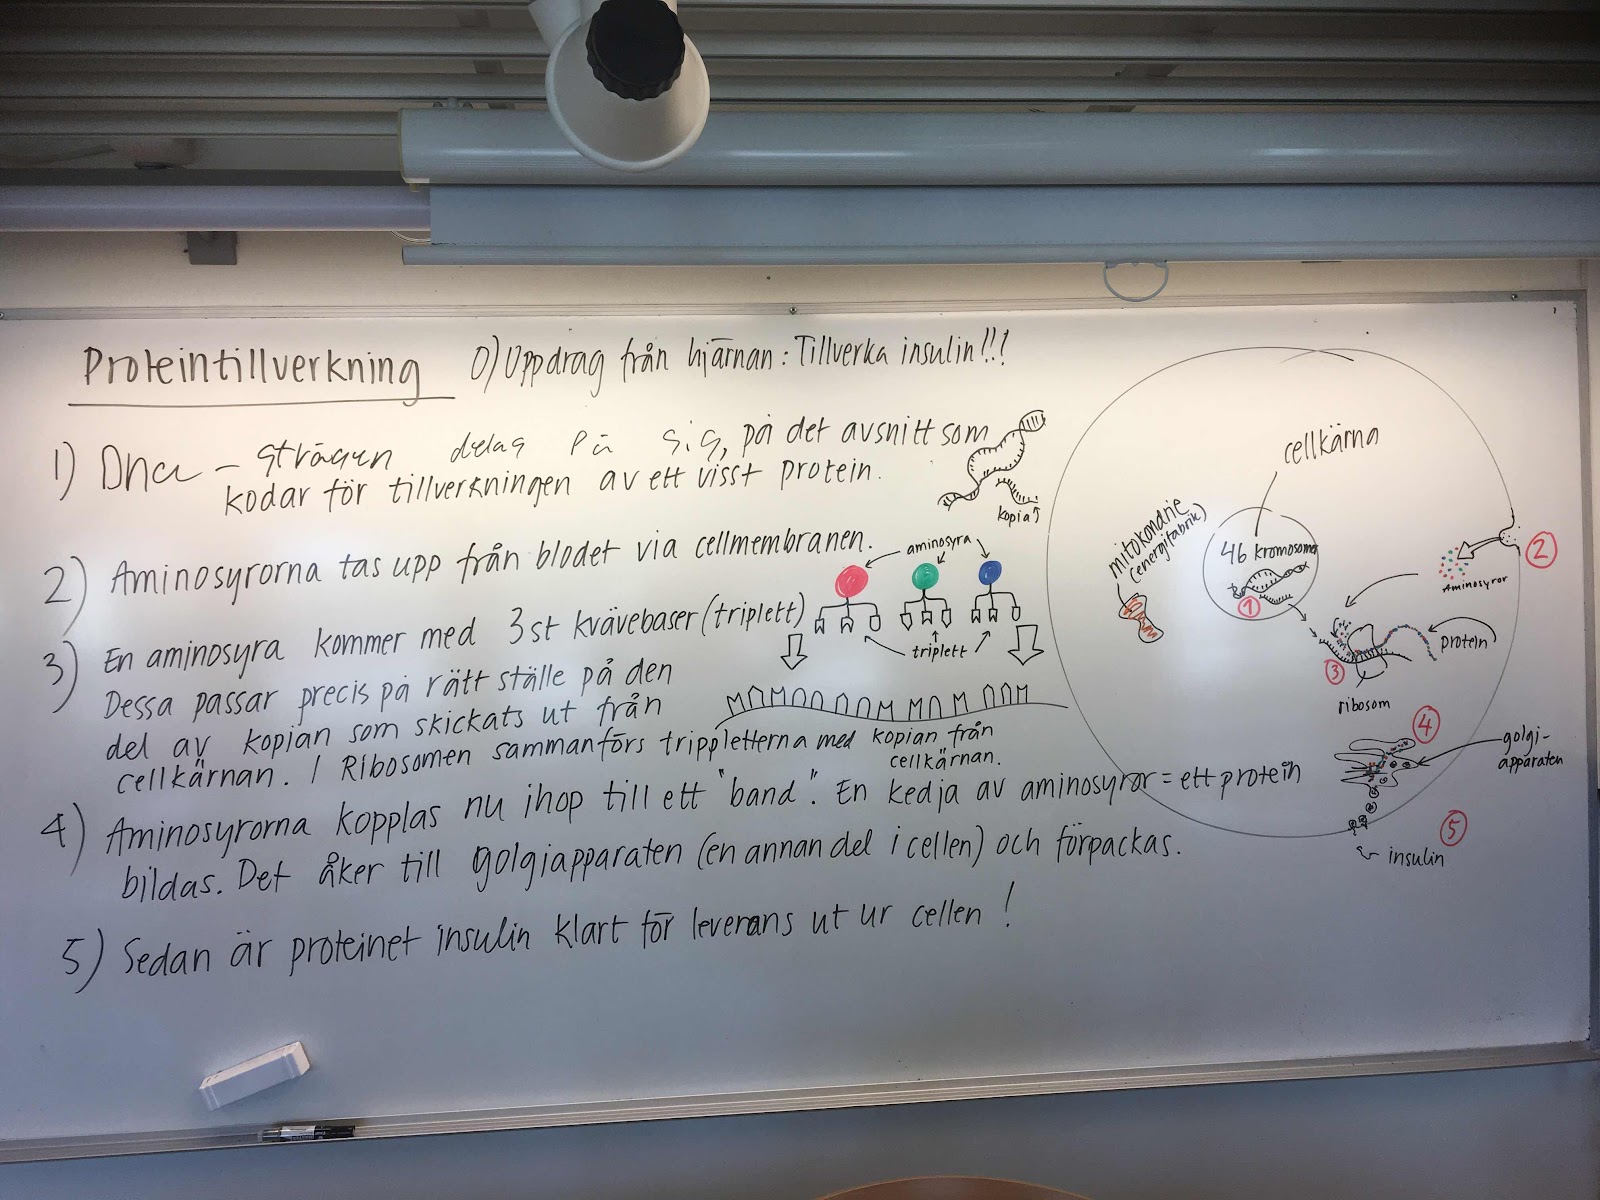 Proteintillverkning
0) Uppdrag från hjärnan: Tillverka insulin!!!
1) Dna - strägen delas på sig, på det avsnitt som
kodar för tillverkningen av ett visst protein.
kopia
2) Aminosyrorna tas upp från blodet via cellmembranen.
aminosyra
3) En aminosyra kommer med 3st kvävebaser (triplett)
triplett
Dessa passar precis på rätt ställe på den
del av kopian som skickats ut från
cellkärnan. I Ribosomen sammanförs trippletterna med kopian från
cellkärnan.
4) Aminosyrorna kopplas nu ihop till ett "band". En kedja av aminosyror = ett protein
bildas. Det åker till golgiapparaten (en annan del i cellen) och förpackas.
5) Sedan är proteinet insulin klart för leverans ut ur cellen!
cellkärna
mitokondrie
(energifabrik)
46 kromosomer
1
2
Aminosyror
protein
3
ribosom
4
golgi-
apparaten
5
insulin